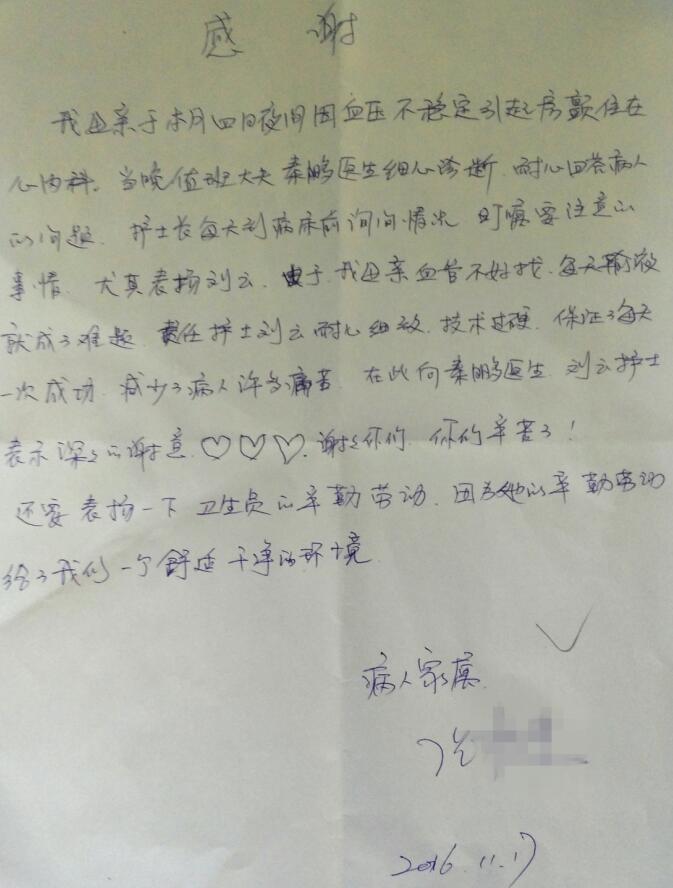 感 谢
我母亲于本月四日夜间因血压不稳定引起房颤住在
心内科。当晚值班大夫秦鹏医生细心诊断.耐心回答病人
的问题.护士长每天到病床前询问情况 叮嘱要注意的
事情.尤其表扬刘云.由于我母亲血管不好找.每天输液
就成了难题.责任护士刘云耐心细致.技术过硬.保证了每天
一次成功.减少了病人许多痛苦.在此向秦鹏医生.刘云护士
表示深深的谢意.♡♡♡.谢谢你们.你们辛苦了!
还要表扬一下卫生员的辛勤劳动.因为她的辛勤劳动
给了我们一个舒适干净的环境.
病人家属.
2016.11.17